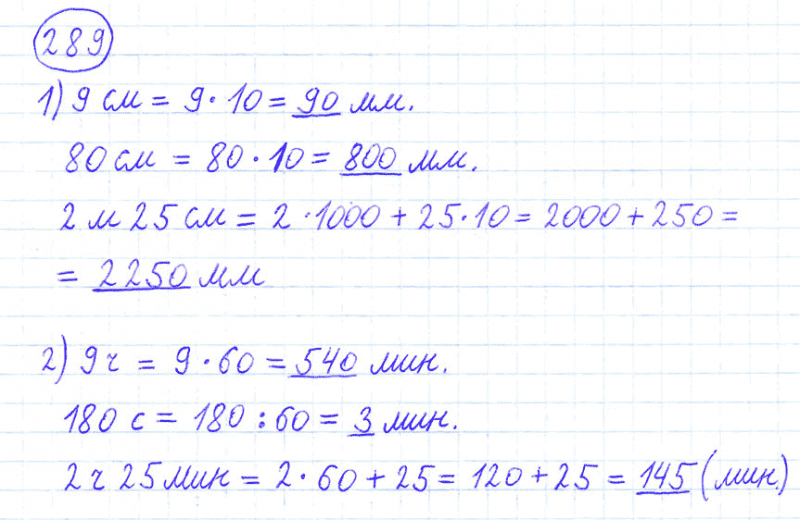 289
1) 9 см = 9 · 10 = 90 мм.
80 см = 80 · 10 = 800 мм.
2 м 25 см = 2 · 1000 + 25 · 10 = 2000 + 250 =
= 2250 мм
2) 9 ч = 9 · 60 = 540 мин.
180 с = 180 : 60 = 3 мин.
2 ч 25 мин = 2 · 60 + 25 = 120 + 25 = 145 (мин.)